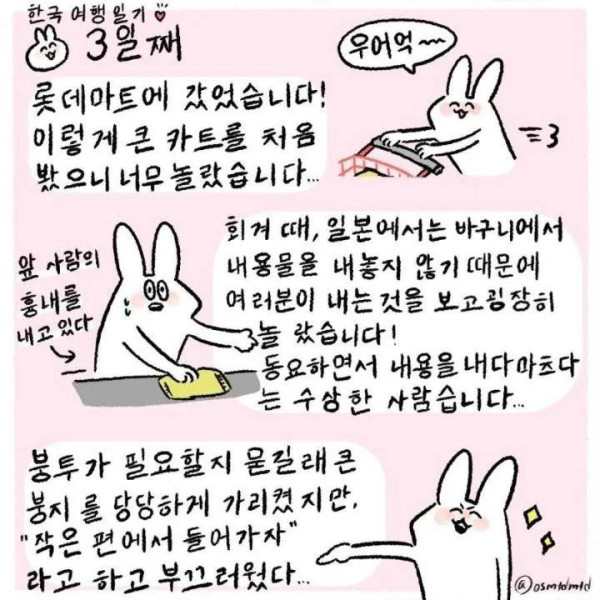 한국 여행 일기
3일째
우어억~~
롯데마트에 갔었습니다!
이렇게 큰 카트를 처음
봤으니 너무 놀랐습니다...
앞 사람의
흉내를
내고 있다
회겨 때, 일본에서는 바구니에서
내용물을 내놓지 않기 때문에
여러분이 내는 것을 보고 굉장히
놀랐습니다!
동요하면서 내용을 내다 마츠다
는 수상한 사람습니다...
붕투가 필요할지 묻길래 큰
붕지를 당당하게 가리켰지만,
"작은 편에서 들어가자"
라고 하고 부끄러웠다...
@osmtdmtd